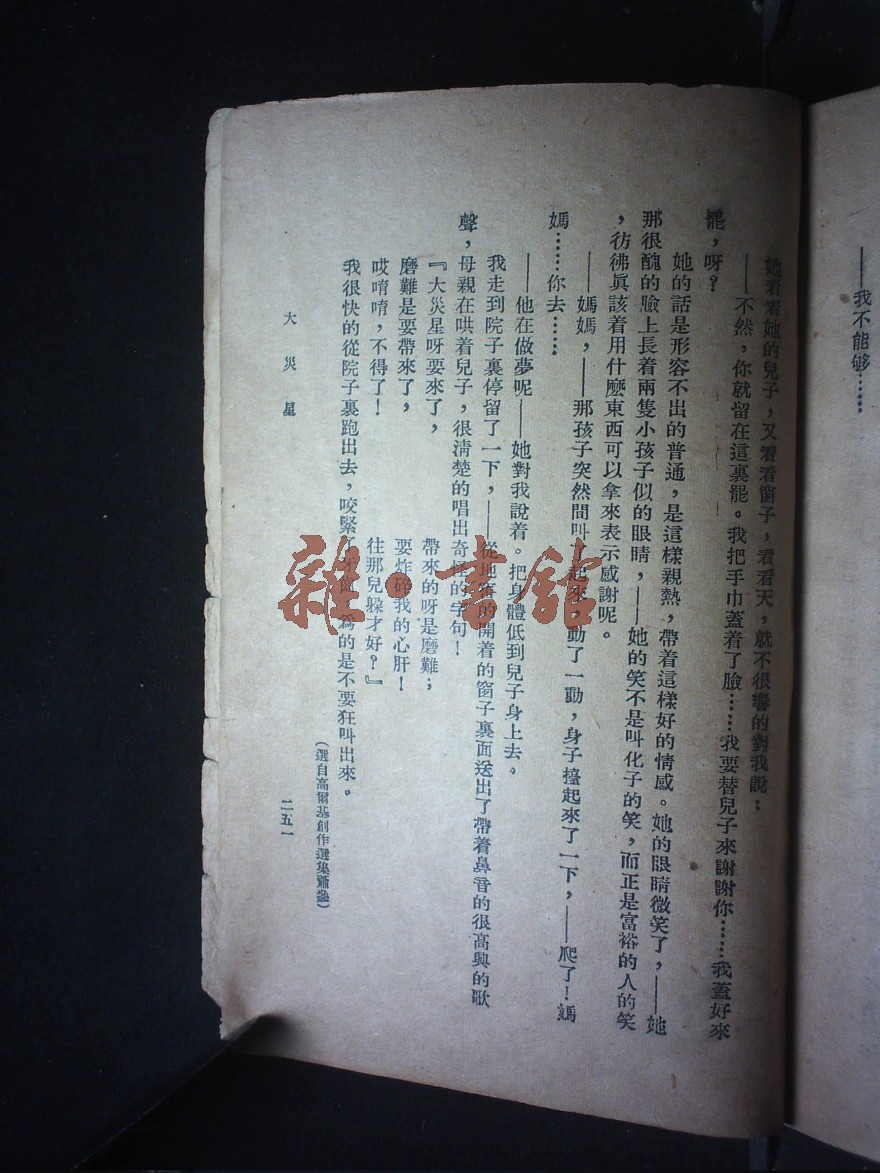 ——我不能够……
她看着她的兒子，又看看窗子，看看天，就不很響的對我說：
——不然，你就留在這裏罷。我把手巾蓋着了臉……我要替兒子來謝謝你……我蓋好來
罷，呀？
她的話是形容不出的普通，是這樣親熱，帶着這樣好的情感。她的眼睛微笑了，——她
那很醜的臉上長着兩隻小孩子似的眼睛，——她的笑不是叫化子的笑，而正是富裕的人的笑
，彷彿眞該着用什麽東西可以拿來表示感謝呢。
——媽媽，——那孩子突然間叫了起來，動了一動，身子擡起來了一下，——爬了！媽
媽……你去……
——他在做夢呢——她對我說着。把身體低到兒子身上去。
我走到院子裏停留了一下，——從地窖的開着的窗子裏面送出了帶着鼻音的很高興的歌
聲，母親在哄着兒子，很清楚的唱出奇怪的字句！
『大災星呀要來了，　帶來的呀是磨難；
磨難是要帶來了，　要炸碎我的心肝！
哎唷唷，不得了！　往那兒躲才好？』
我很快的從院子裏跑出去，咬緊了牙齒，爲的是不要狂叫出來。
（選自高爾基創作選集蕭參）
大災星
二五一
雜·書館